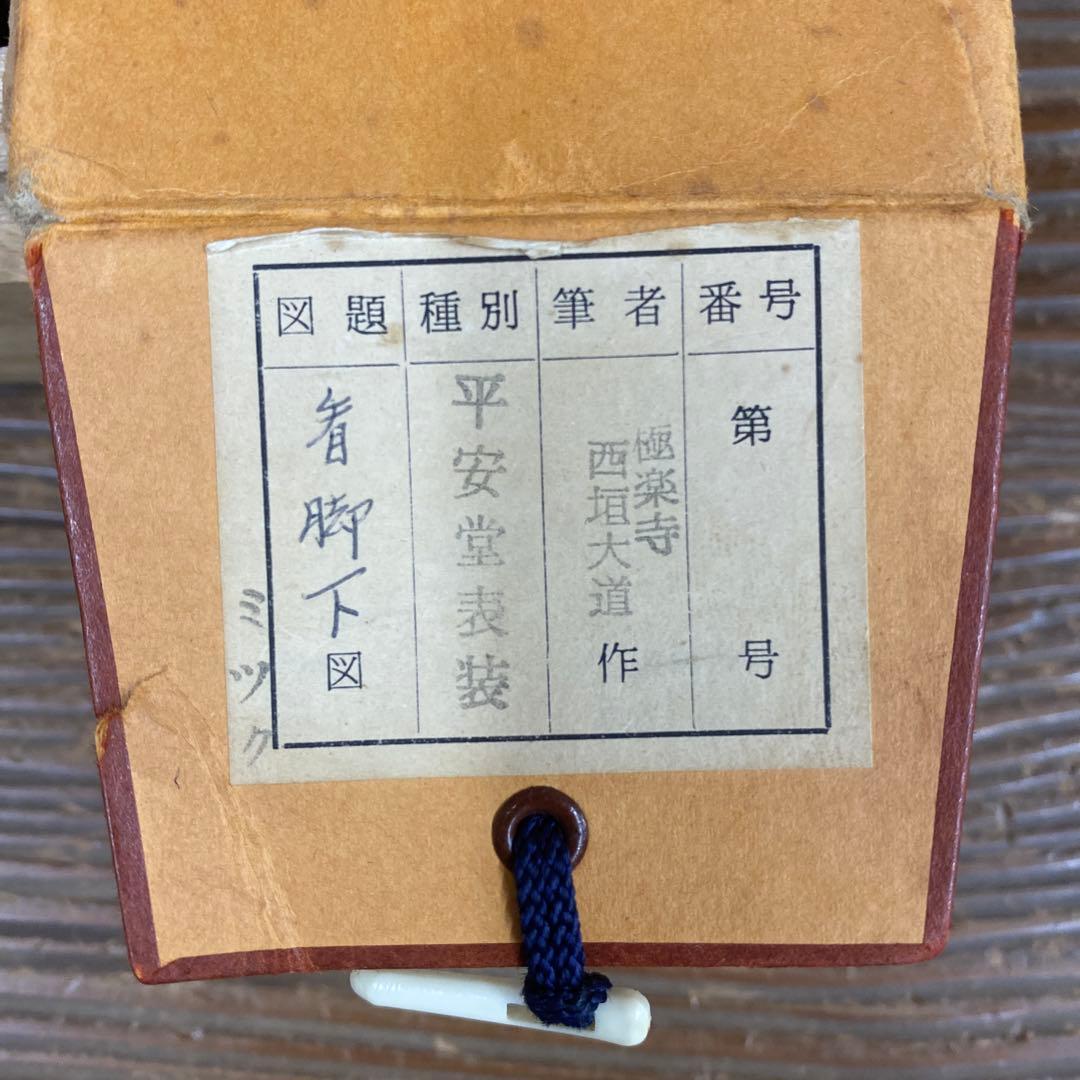 番号
第 号
筆者
極楽寺
西垣大道
作
種別
平安堂表装
図題
看脚下図
ミツク